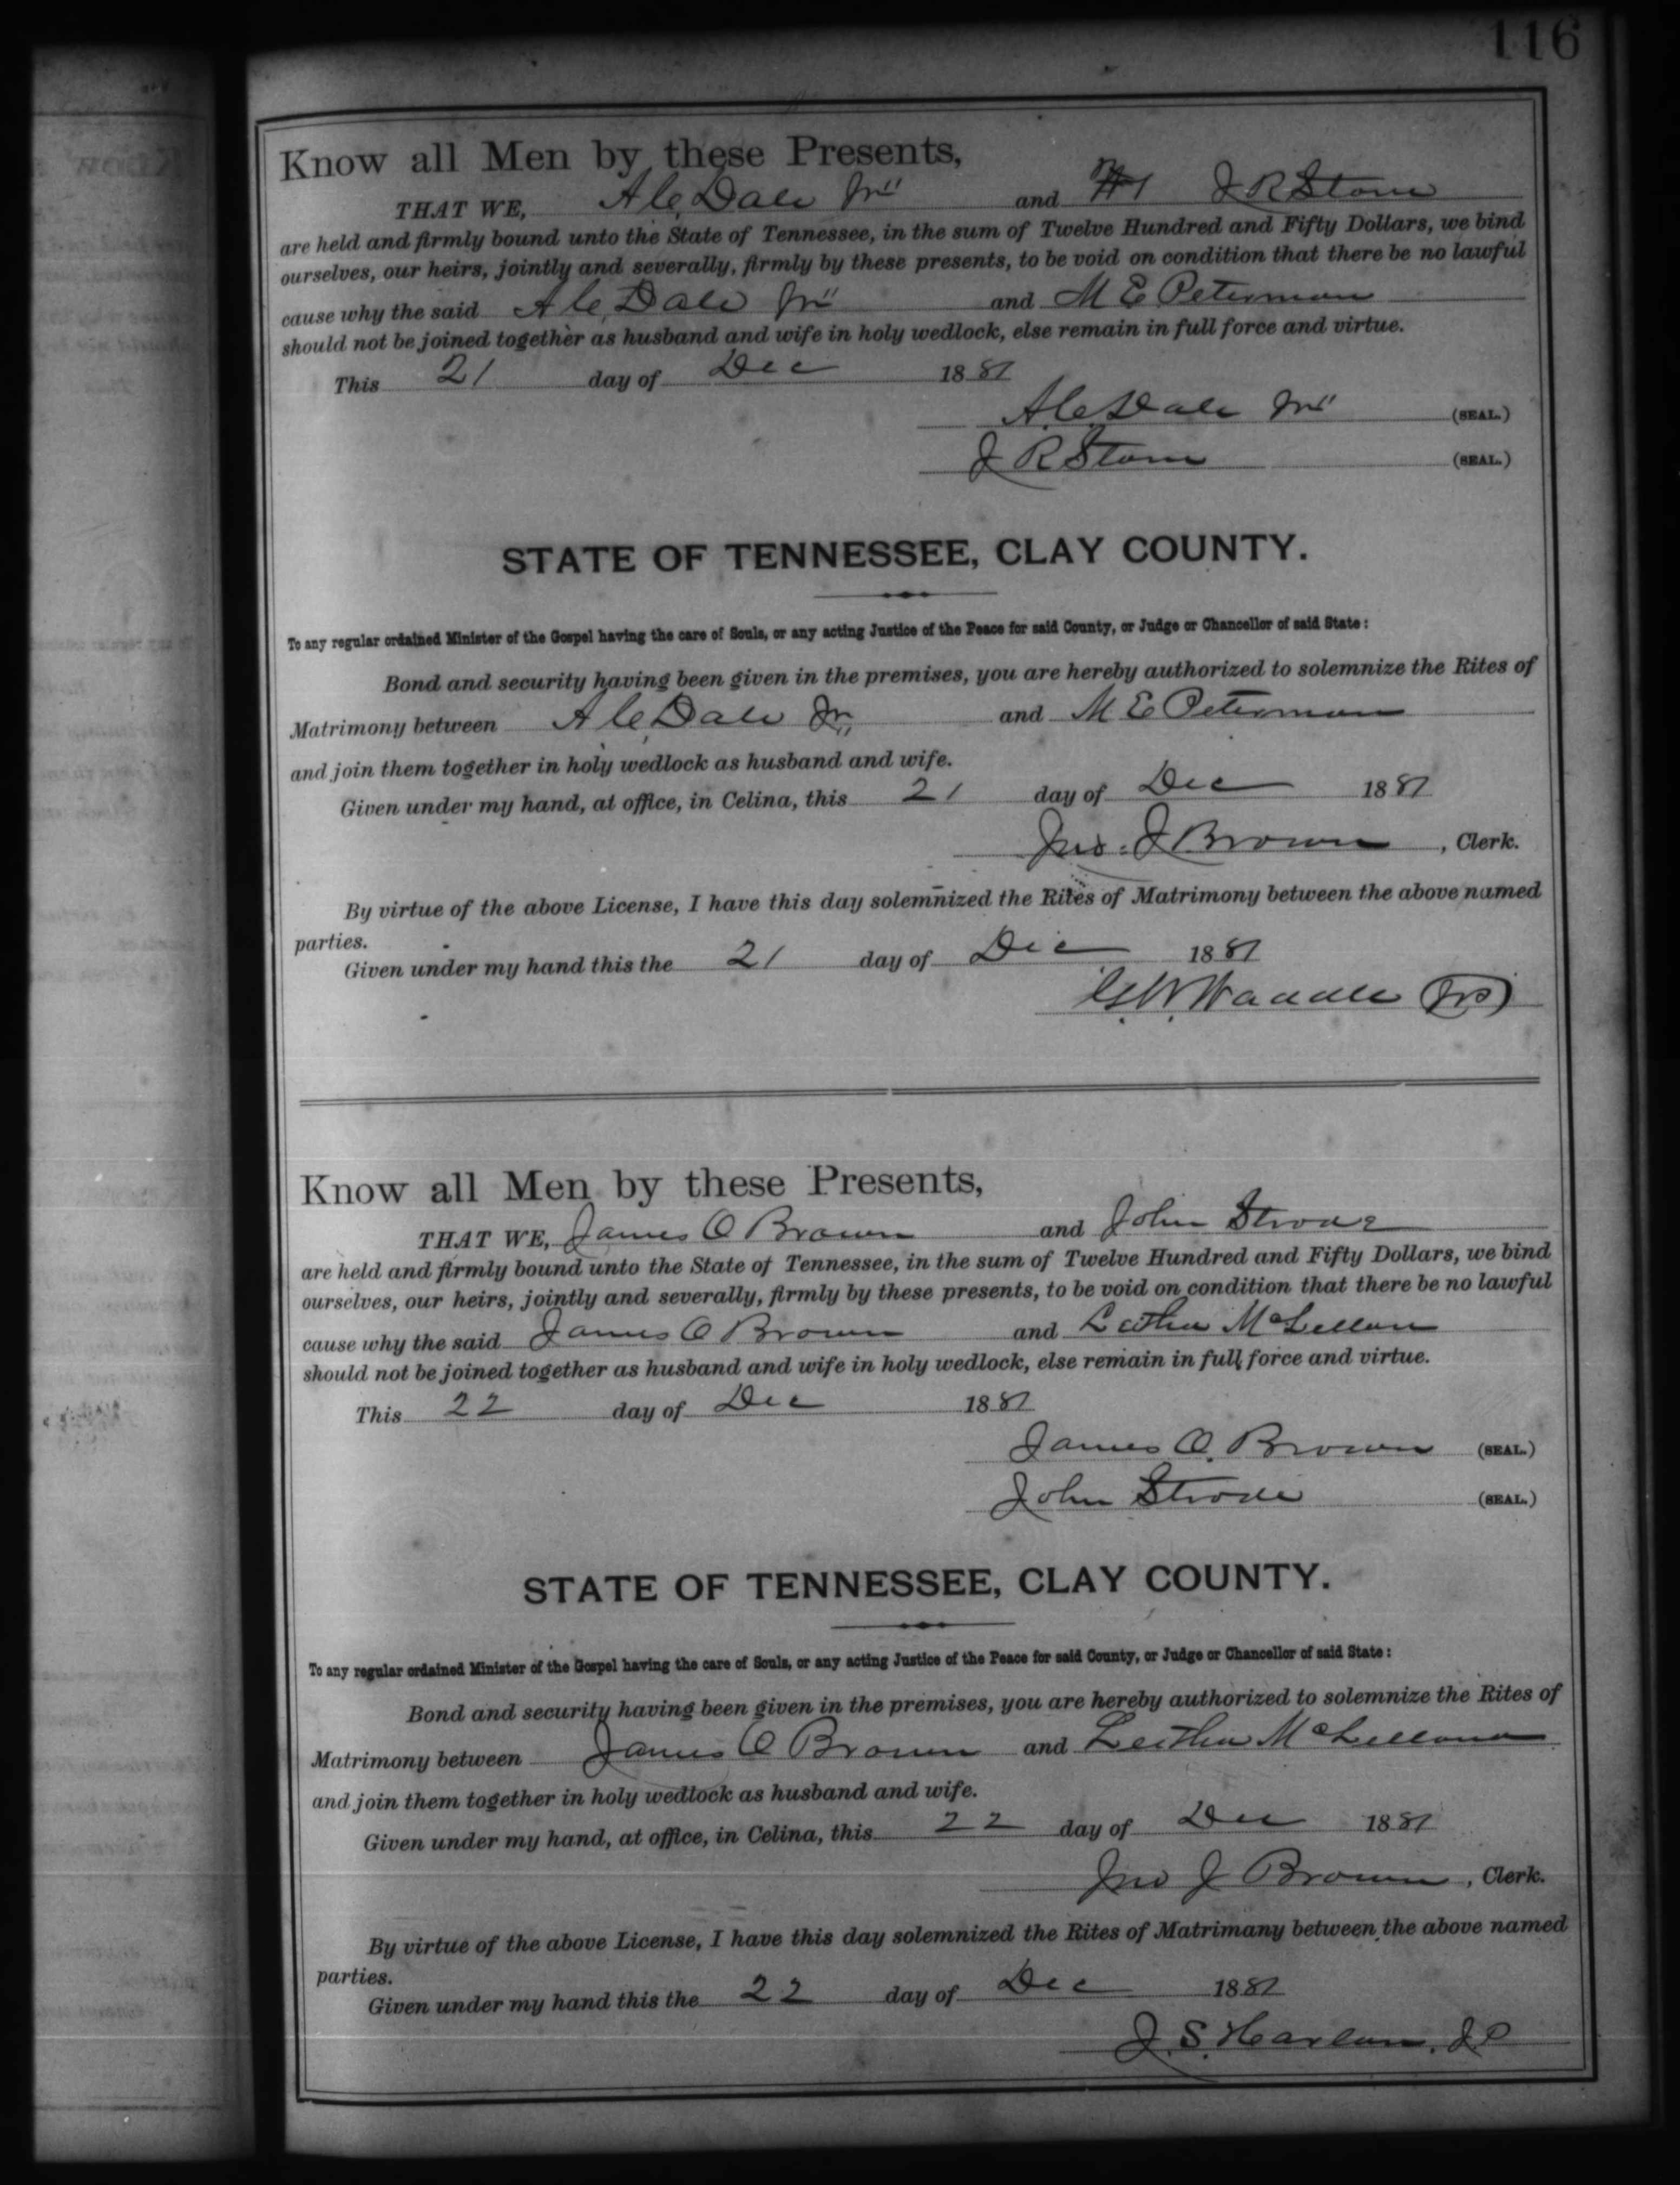 116
Know all Men by these Presents,
THAT WE, A. C. Dale Jr" and J R Stone
are held and firmly bound unto the State of Tennessee, in the sum of Twelve Hundred and Fifty Dollars, we bind
ourselves, our heirs, jointly and severally, firmly by these presents, to be void on condition that there be no lawful
cause why the said A. C. Dale Jr" and M E Peterman
should not be joined together as husband and wife in holy wedlock, else remain in full force and virtue.
This 21 day of Dec 1887
A. C. Dale Jr" (SEAL.)
J R Stone (SEAL.)
STATE OF TENNESSEE, CLAY COUNTY.
To any regular ordained Minister of the Gospel having the care of Souls, or any acting Justice of the Peace for said County, or Judge or Chancellor of said State:
Bond and security having been given in the premises, you are hereby authorized to solemnize the Rites of
Matrimony between A. C. Dale Jr," and M E Peterman
and join them together in holy wedlock as husband and wife.
Given under my hand, at office, in Celina, this 21 day of Dec 1887
Jno. J Brown, Clerk.
By virtue of the above License, I have this day solemnized the Rites of Matrimony between the above named
parties.
Given under my hand this the 21 day of Dec 1887
G. W. Waddle
Know all Men by these Presents,
THAT WE, James O Brown and John Strode
are held and firmly bound unto the State of Tennessee, in the sum of Twelve Hundred and Fifty Dollars, we bind
ourselves, our heirs, jointly and severally, firmly by these presents, to be void on condition that there be no lawful
cause why the said James O Brown and Leitha McLellan
should not be joined together as husband and wife in holy wedlock, else remain in full force and virtue.
This 22 day of Dec 1887
James O. Brown (SEAL.)
John Strode (SEAL.)
STATE OF TENNESSEE, CLAY COUNTY.
To any regular ordained Minister of the Gospel having the care of Souls, or any acting Justice of the Peace for said County, or Judge or Chancellor of said State:
Bond and security having been given in the premises, you are hereby authorized to solemnize the Rites of
Matrimony between James O Brown and Leitha McLelland
and join them together in holy wedlock as husband and wife.
Given under my hand, at office, in Celina, this 22 day of Dec 1887
Jno J Brown, Clerk.
By virtue of the above License, I have this day solemnized the Rites of Matrimany between the above named
parties.
Given under my hand this the 22 day of Dec 1887
J. S. Harlan. J. P